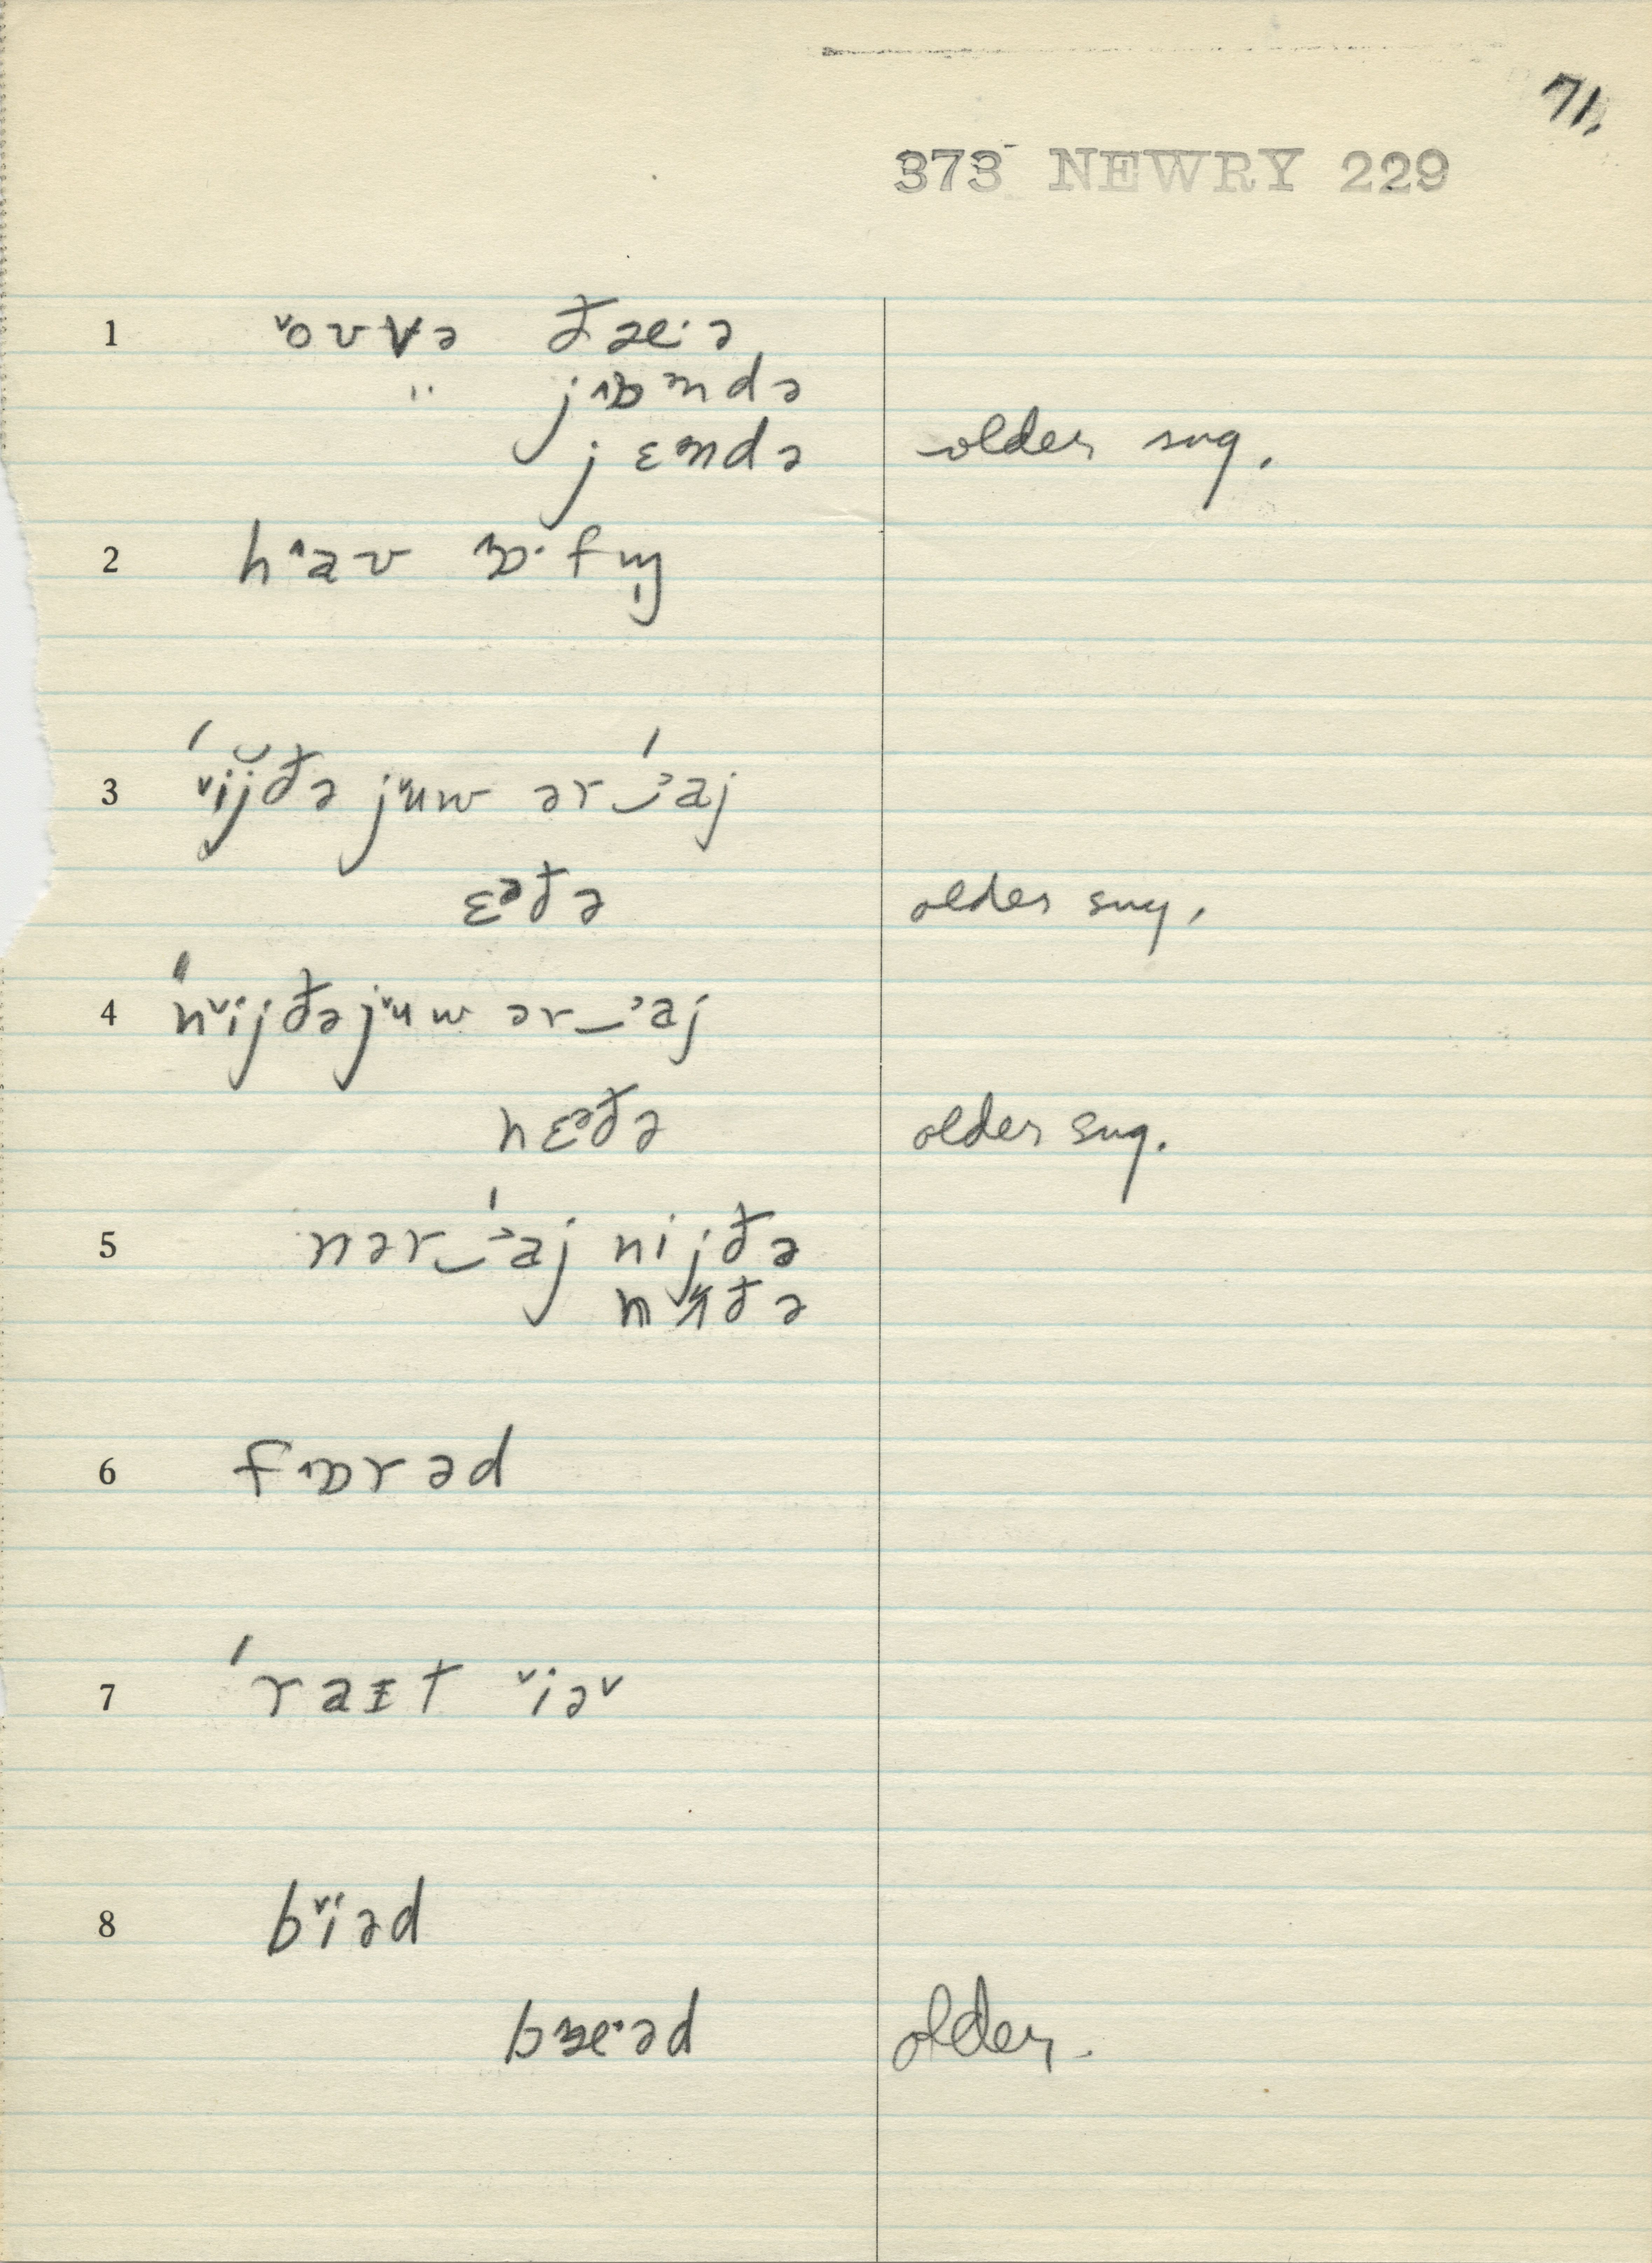 71.
373 NEWRY 229
1 ˅oʊvə ðæ·ə
" jɒndə
jɛndə older sug.
2 h˄aʊ ɒ·fn̩
3 ˅ijðə j˅uw ər_ɔ'aj
ɛᵊðə older sug.
4 n˅ijðə j˅uw ər_ɔ'aj
nɛᵊðə older sug.
5 nər_ɔ'aj nijðə
6 fɒrəd
7 'raɪt ˅iə˅
8 b˅iəd
bæ·əd older.